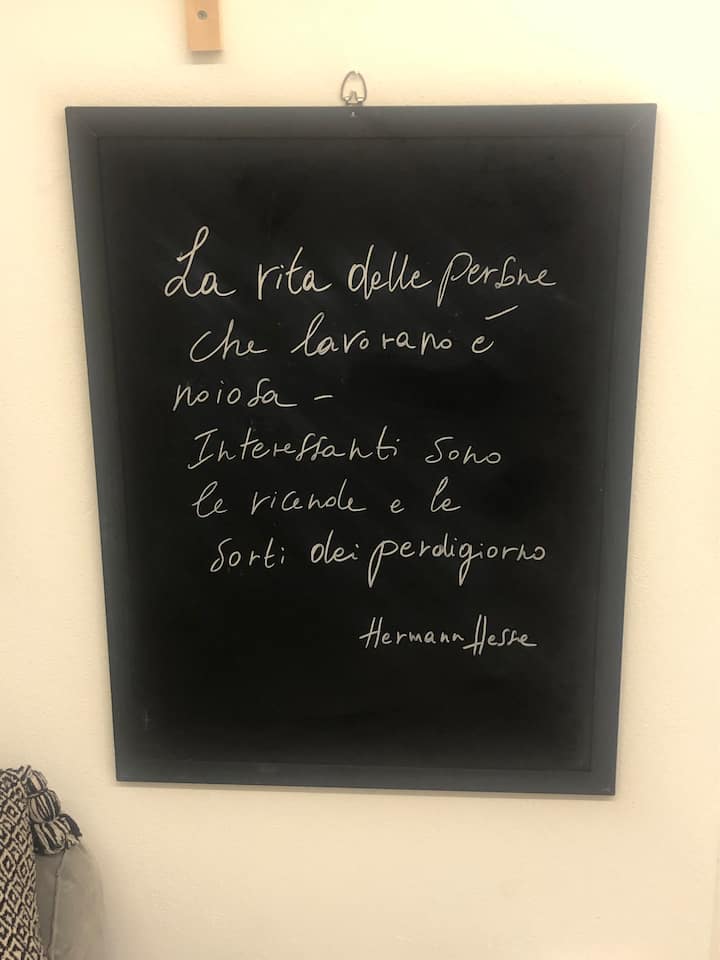 La vita delle persone
che lavorano é
noiosa -
Interessanti sono
le vicende e le
sorti dei perdigiorno
Hermann Hesse